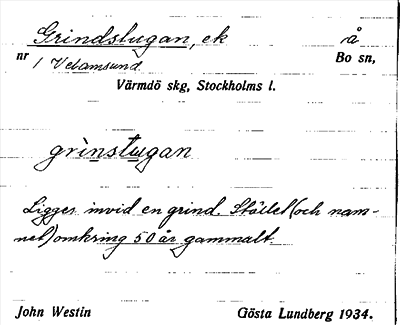 Grindstugan, ek å
nr 1 Velamsund Bo sn,
Värmdö skg, Stockholms l.
grinstugan
Ligger invid en grind. Stället (och nam-
net) omkring 50 år gammalt.
John Westin Gösta Lundberg 1934.